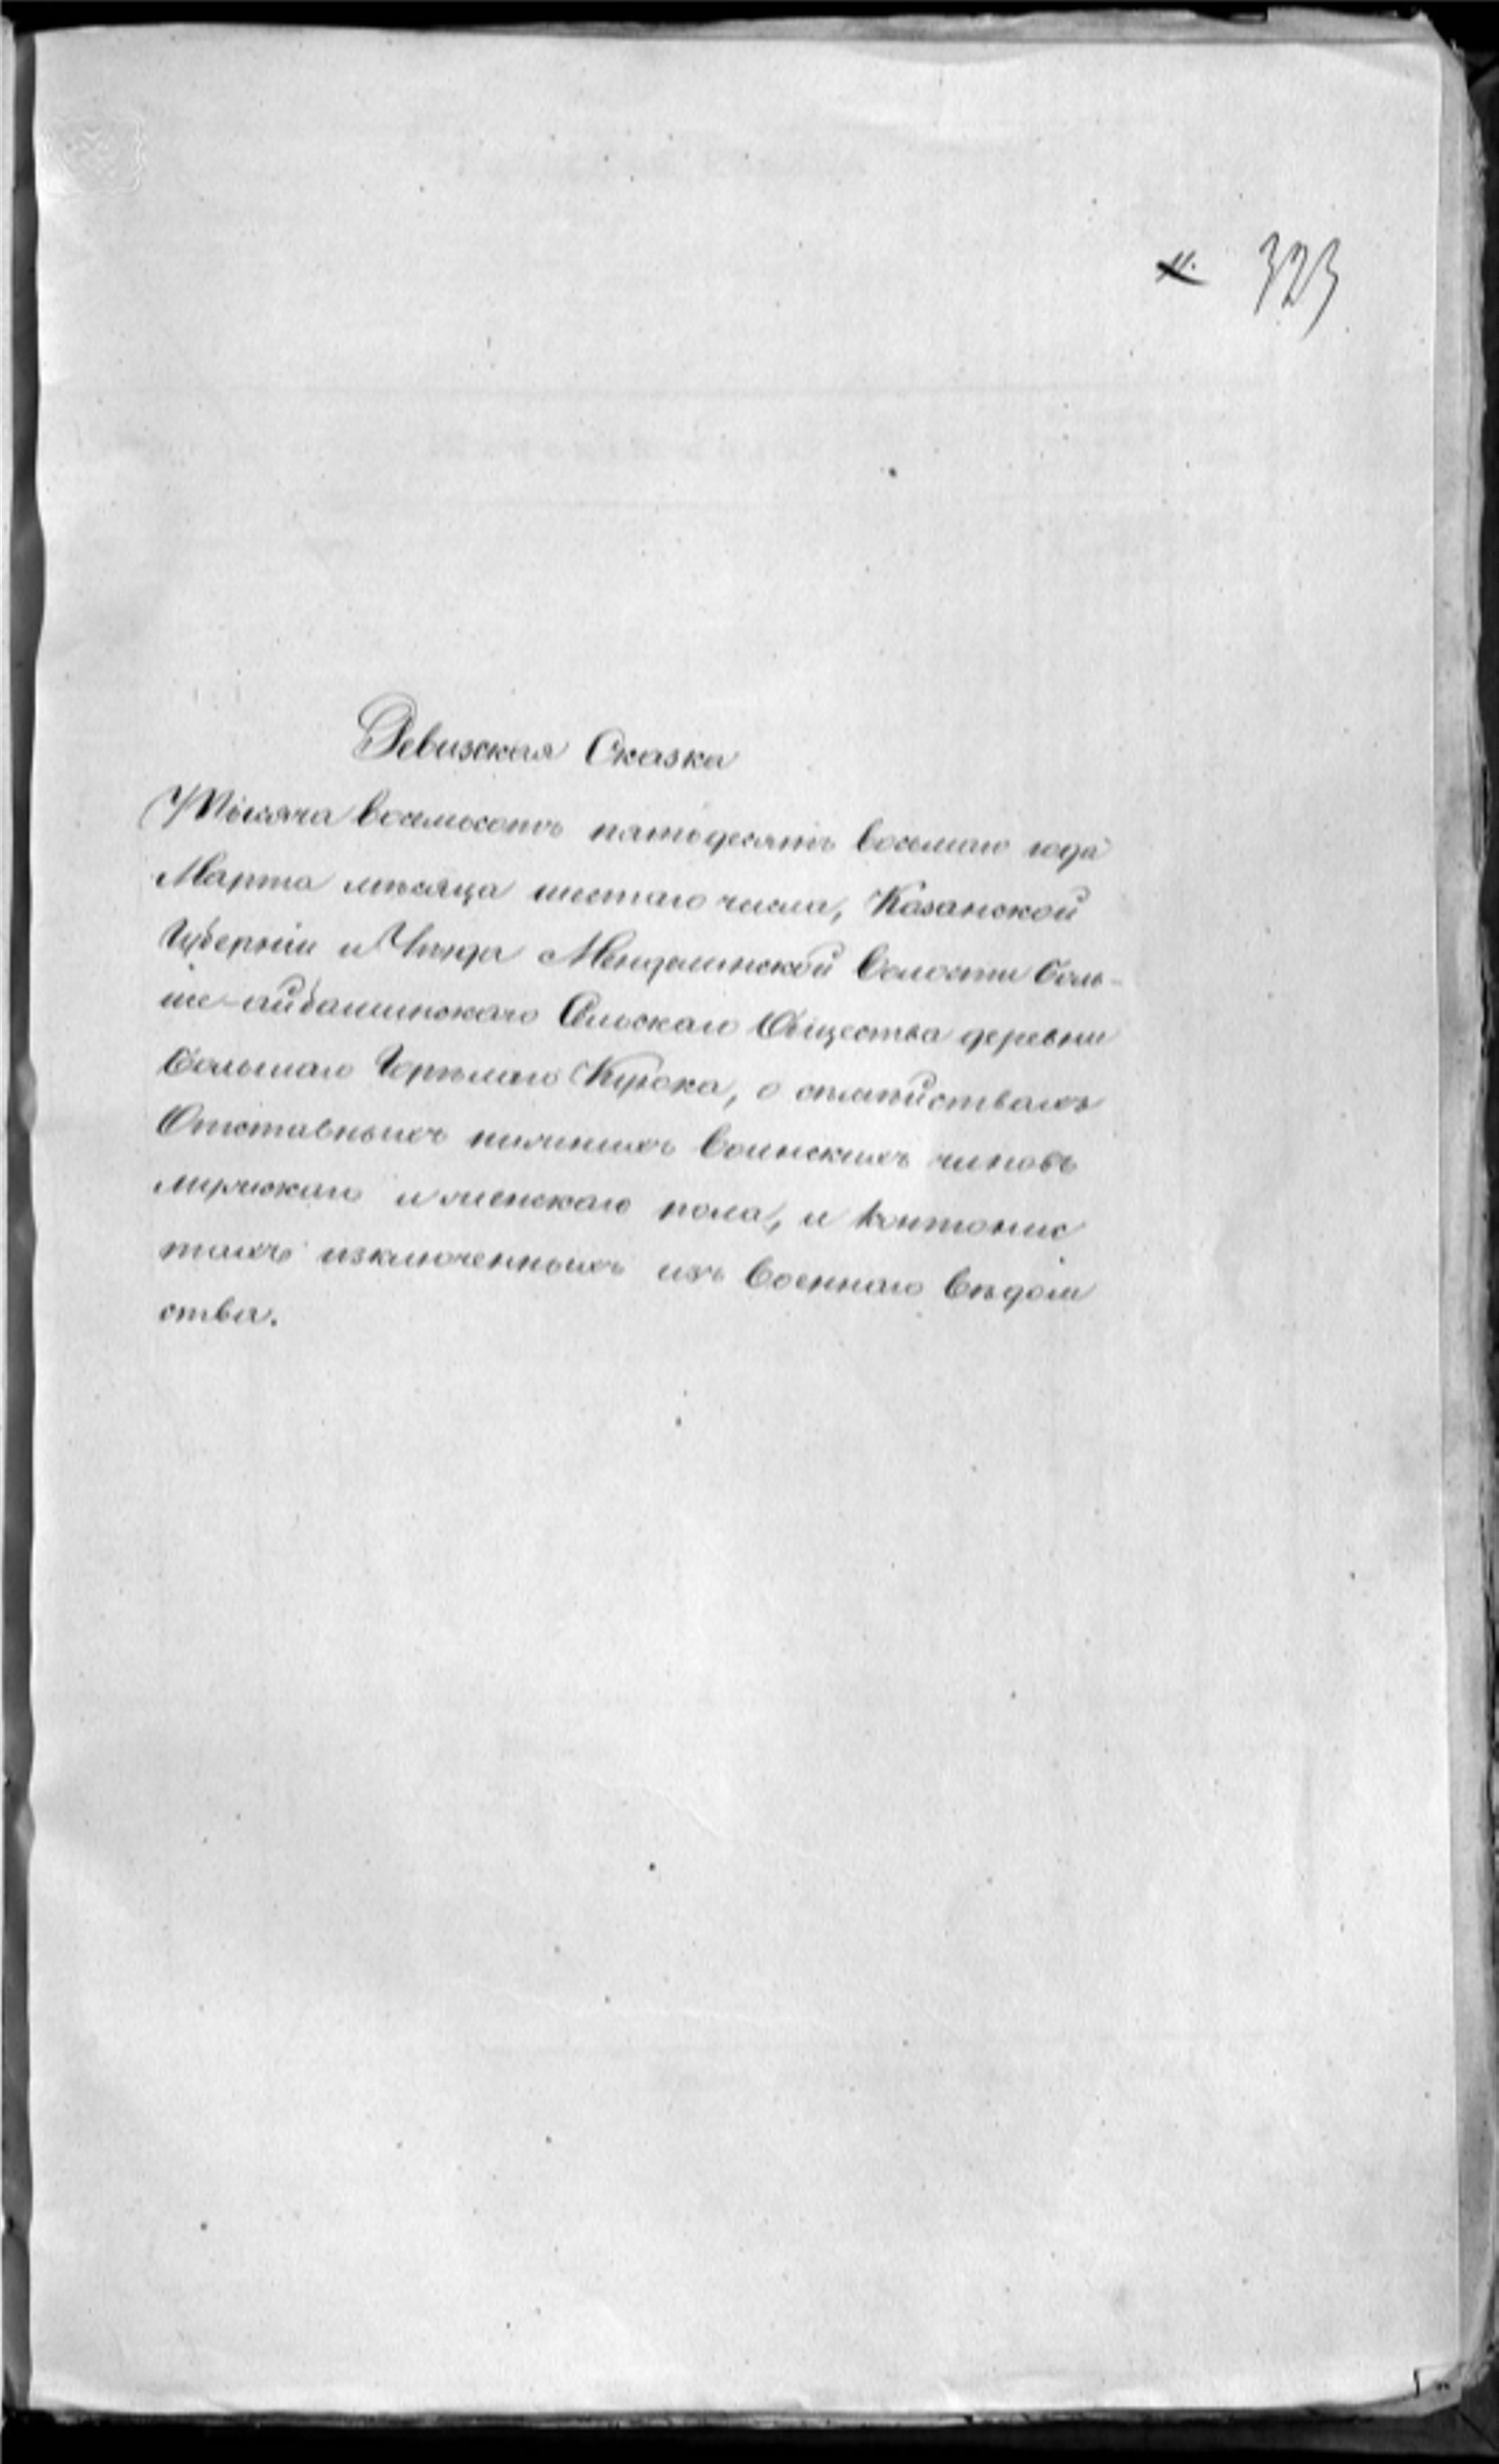 323
Ревизская Сказка
Тысяча восемьсотъ пятьдесятъ восьмаго года
Марта мѣсяца шестаго числа, Казанской
Губерніи и Уѣзда Менделинской Волости Боль-
ше-айбашинскаго Сельскаго Общества деревни
Большаго Горѣлаго Куюка, о семѣйствахъ
Отставныхъ нижнихъ воинскихъ чиновъ
мужскаго и женскаго пола, и кантонис
тахъ изключенныхъ изъ Военнаго Вѣдом
ства.